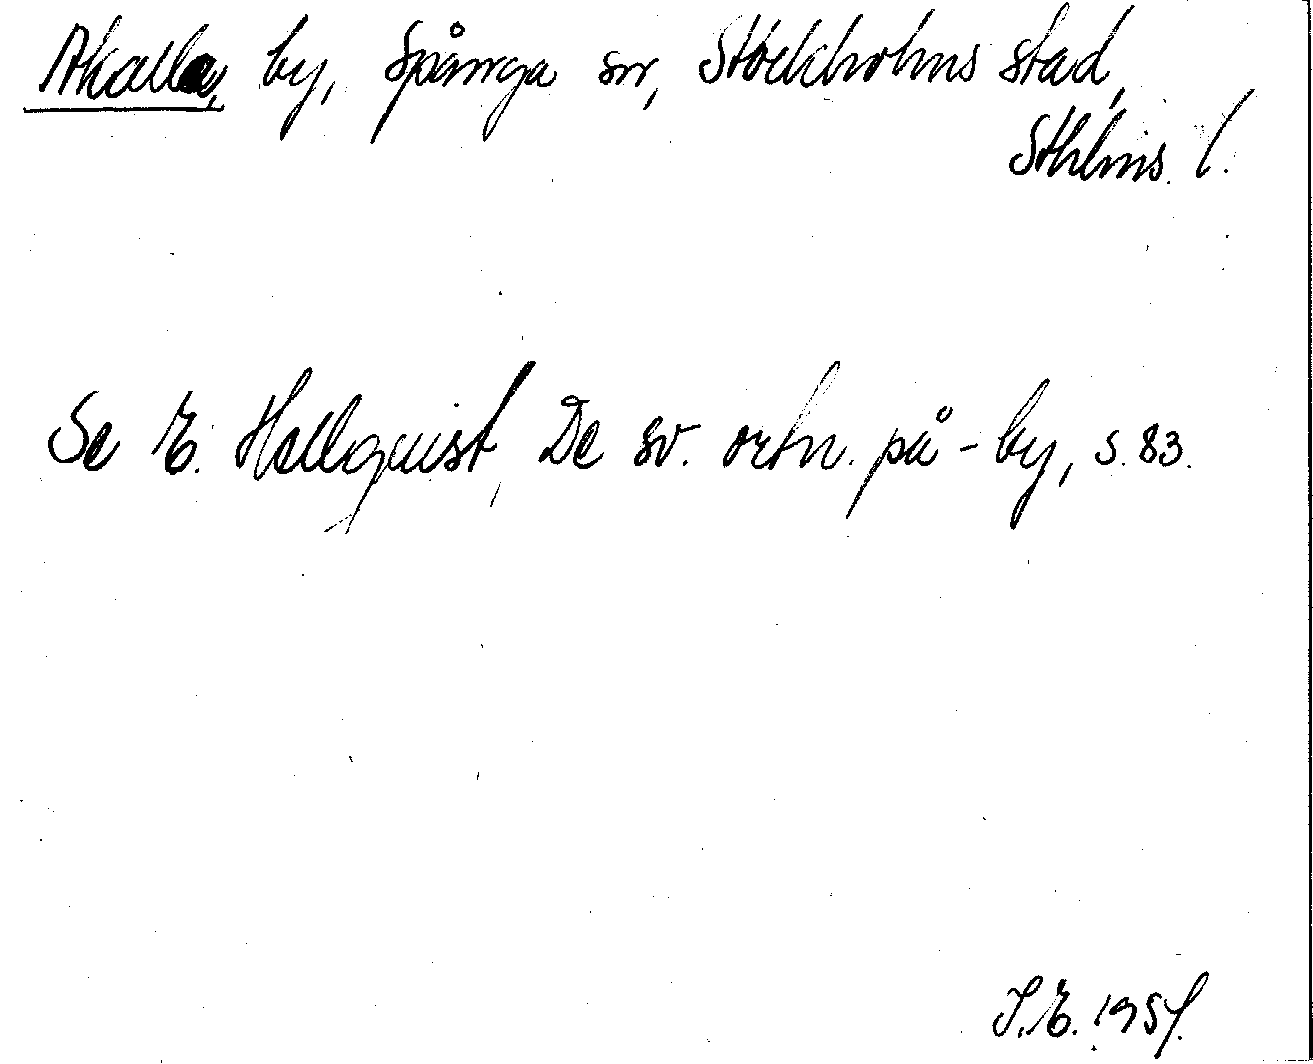 Akalla, by, Spånga sn, Stockholms stad,
Sthlms. l.
Se E. Hellquist, De sv. ortn. på -by, s. 83.
I.E. 1957.